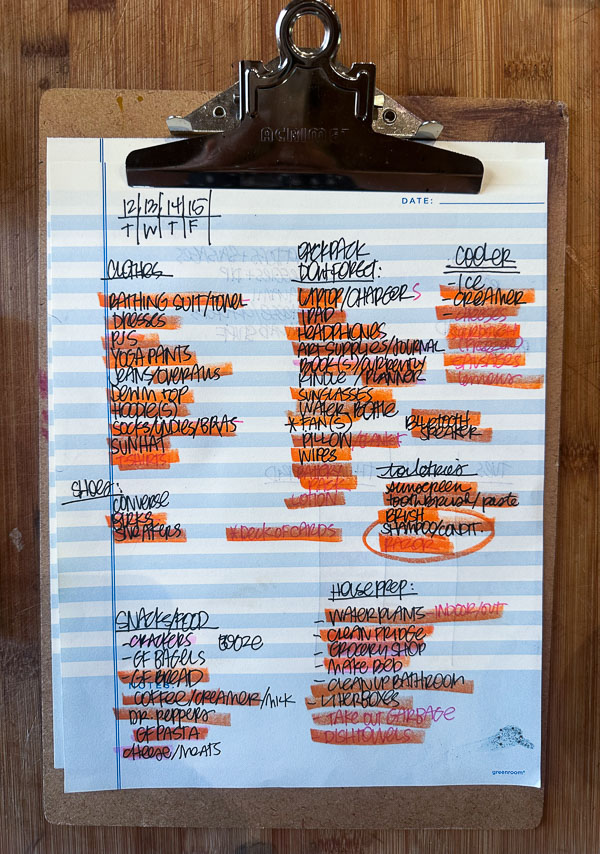 DATE:
12 | 13 | 14 | 15
T | W | T | F
CLOTHES
BATHING SUIT/TOWEL
DRESSES
PJS
YOGA PANTS
JEANS/OVERALLS
DENIM TOP
HOODIE(S)
SOCKS/UNDIES/BRAS
SUNHAT
SHOES:
CONVERSE
BIRKS
SNEAKERS
*DECK OF CARDS
BACKPACK
DONT FORGET:
LAPTOP/CHARGERS
IPAD
HEADPHONES
ART SUPPLIES/JOURNAL
BOOK(S)/CURRENTLY
KINDLE / PLANNER
SUNGLASSES
WATER BOTTLE
* FAN(S)
PILLOW/BLANKET
WIPES
LOTION
BLUETOOTH
SPEAKER
COOLER
- ICE
- CREAMER
- CHEESES
SAUSAGES
toiletries
SUNSCREEN
TOOTHBRUSH/PASTE
BRUSH
SHAMPOO/CONDIT.
SNACKS/FOOD
- CRACKERS BOOZE
- GF BAGELS
- GF BREAD
COFFEE/CREAMER/MILK
DR. PEPPERS
GF PASTA
CHEESE/MEATS
HOUSE PREP:
- WATER PLANTS - INDOOR/OUT
- CLEAN FRIDGE
- GROCERY SHOP
- MAKE BED
- CLEAN UP BATHROOM
- LITTERBOXES
- TAKE OUT GARBAGE
DISHTOWELS
greenroom